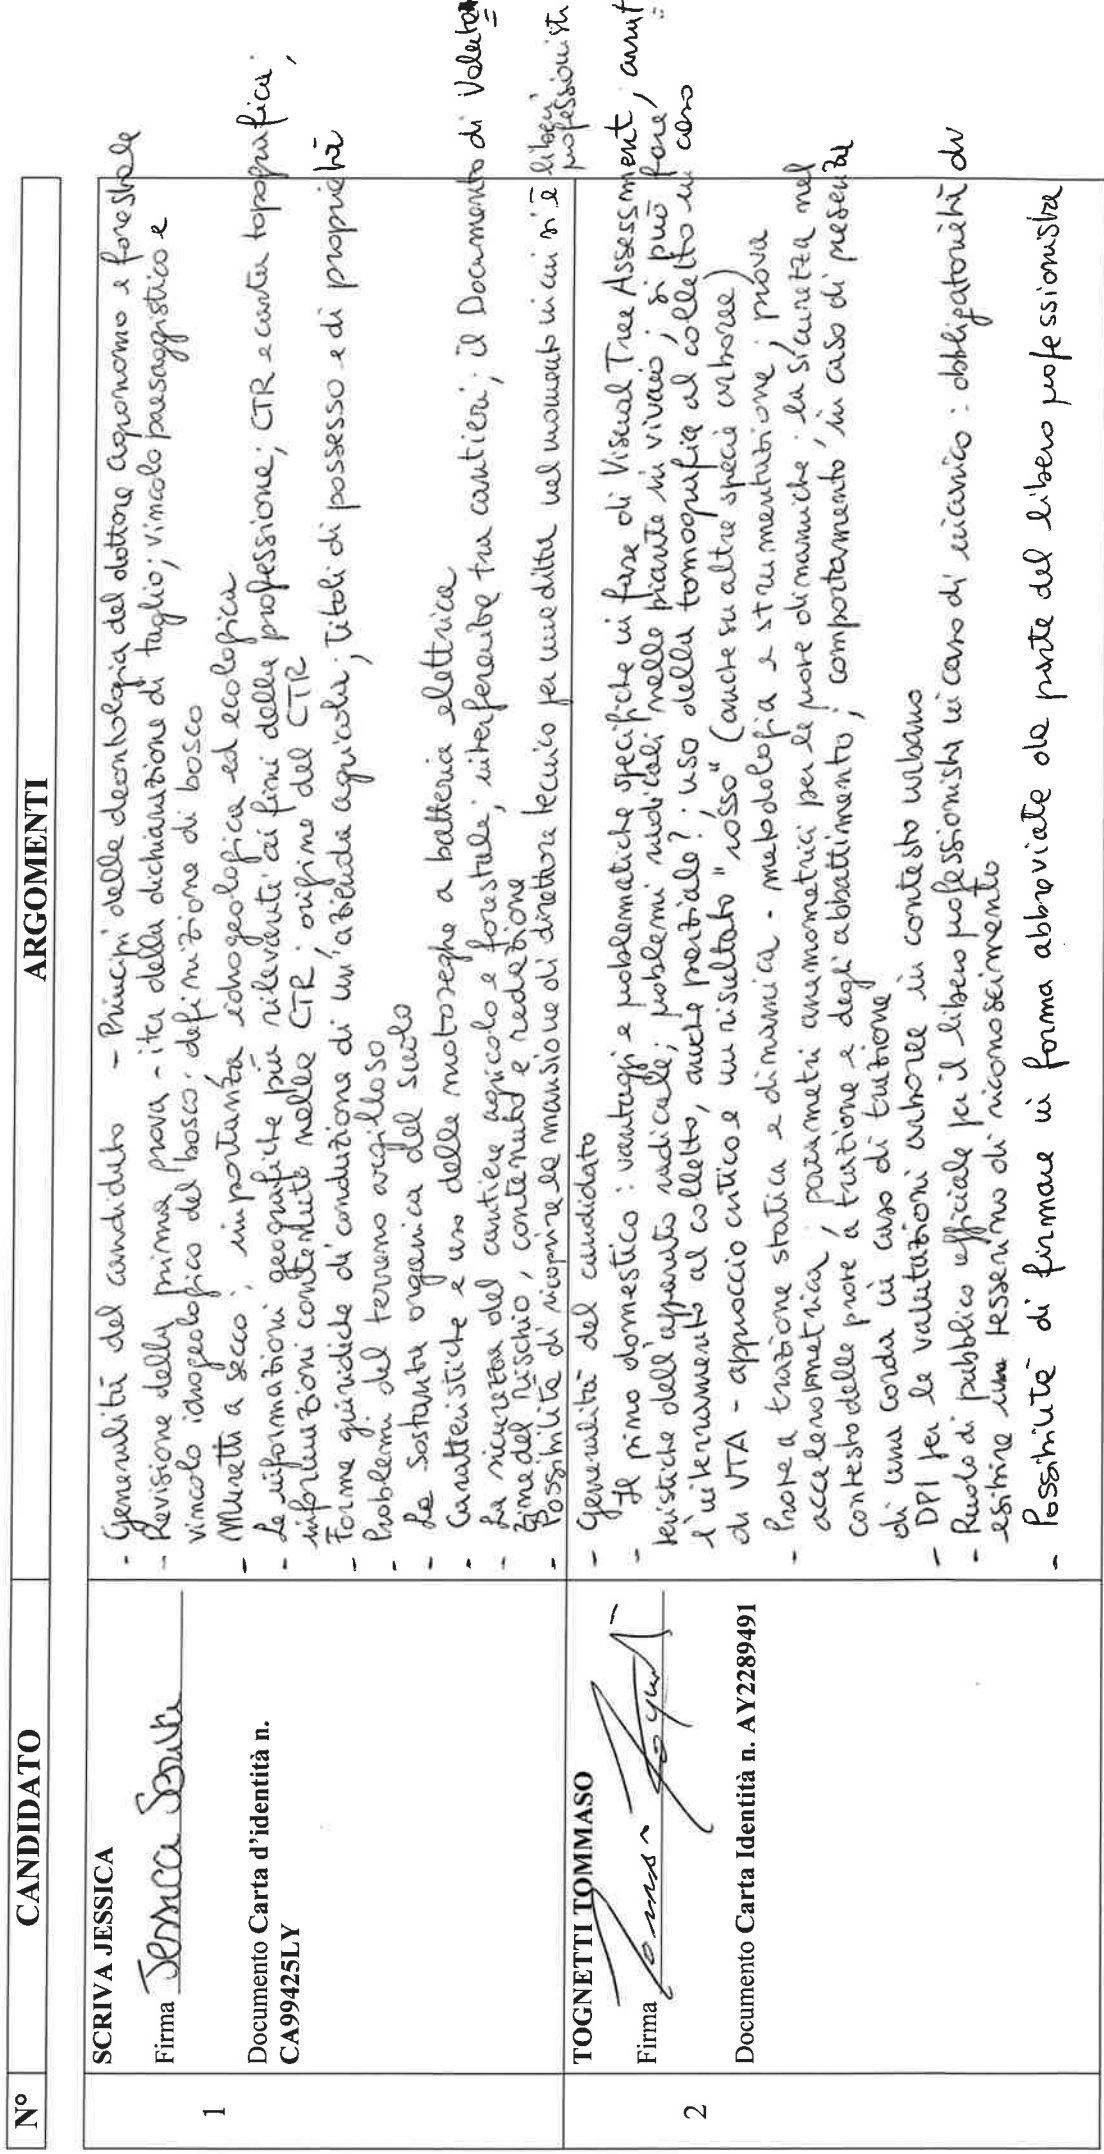 N° CANDIDATO ARGOMENTI
1
SCRIVA JESSICA
Firma Jessica Scriva
Documento Carta d'identità n.
CA99425LY
- Generalità del candidato - Principi della deontologia del dottore agronomo e forestale
- Revisione della prima prova - iter della dichiarazione di taglio; vincolo paesaggistico e
vincolo idrogeologico del bosco; definizione di bosco
- Muretti a secco; importanza idrogeologica ed ecologica
- Le informazioni geografiche più rilevanti ai fini della professione; CTR e carta topografica;
informazioni contenute nella CTR; origine del CTR
- Forme giuridiche di conduzione di un'azienda agricola; Titoli di possesso e di proprietà
- Problemi del terreno argilloso
- La Sostanza organica del suolo
- Caratteristiche e uso delle motoseghe a batteria elettrica
- La sicurezza del cantiere agricolo e forestale; interferenze tra cantieri; il Documento di Valuta
zione del rischio, contenuto e redazione
- Possibilità di ricoprire la mansione di direttore tecnico per una ditta nel momento in cui si è liberi
professionisti
2
TOGNETTI TOMMASO
Firma
Documento Carta Identità n. AY2289491
- Generalità del candidato
- Il pino domestico: vantaggi e problematiche specifiche in fase di Visual Tree Assessment,
teristiche dell'apparato radicale; problemi radicali nelle piante in vivaio; si può fare
l'interramento al colletto, anche parziale?; uso della tomografia al colletto in caso
di VTA - approccio critico e un risultato "rosso" (anche su altre specie arboree)
- Prove a trazione statica e dinamica - metodologia e strumentazione; prova
accelerometrica; parametri anemometrici per le prove dinamiche; la sicurezza nel
contesto delle prove a trazione e degli abbattimento; comportamento in caso di presenza
di una corda in caso di trazione
- DPI per le valutazioni arboree in contesto urbano
- Ruolo di pubblico ufficiale per il libero professionista in caso di incarico: obbligatorietà di
esibire un tesserino di riconoscimento
- Possibilità di firmare in forma abbreviata da parte del libero professionista